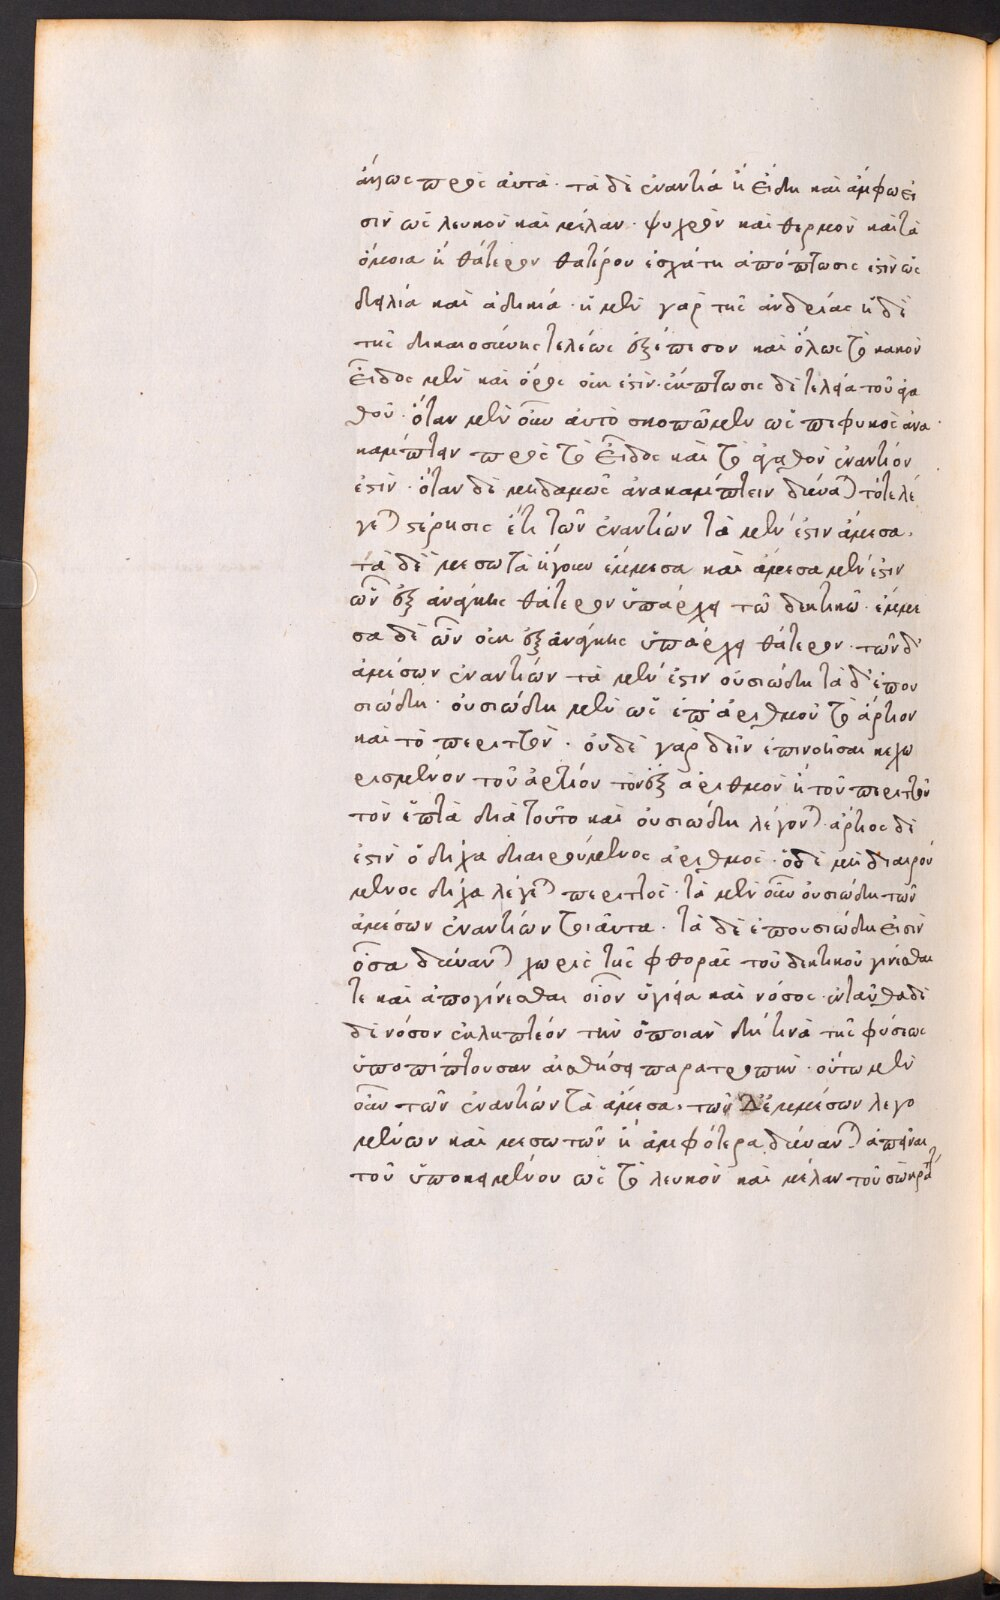 ἄλλως πρὸς αὐτά· τὰ δὲ ἐναντία ἢ εἴδη καὶ ἄμφω εἰ
σιν ὡς λευκὸν καὶ μέλαν· ψυχρὸν καὶ θερμὸν καὶ τὰ
ὅμοια ἢ θάτερον θατέρου ἐσχάτη ἀπόπτωσις ἐστὶν ὡς
δειλία καὶ ἀδικία· ἡ μὲν γὰρ τῆς ἀνδρίας ἡ δὲ
τῆς δικαιοσύνης τελέως ἐξέπεσον καὶ ὅλως τὸ κακὸν
εἶδος μὲν καὶ ὅρος οὐκ ἐστὶν· ἔκπτωσις δὲ τελεία τοῦ ἀγα
θοῦ· ὅταν μὲν οὖν αὐτὸ σκοπῶμεν ὡς πεφυκὸς ἀνα
κάμπτειν πρὸς τὸ εἶδος καὶ τὸ ἀγαθὸν ἐναντίον
ἐστὶν· ὅταν δὲ μηδαμῶς ἀνακάμπτειν δύναται τότε λέ
γεται στέρησις ἔτι τῶν ἐναντίων τὰ μέν ἐστιν ἄμεσα·
τὰ δὲ μεσωτὰ ἤγουν ἔμμεσα καὶ ἄμεσα μέν ἐστιν
ὧν ἐξ ἀνάγκης θάτερον ὑπάρχει τῷ δεκτικῷ· ἔμμε
σα δὲ ὧν οὐκ ἐξ ἀνάγκης ὑπάρχει θάτερον· τῶν δ'
ἀμέσων ἐναντίων τὰ μέν ἐστιν οὐσιώδη τὰ δ' ἐπου
σιώδη· οὐσιώδη μὲν ὡς ἐπ' ἀριθμοῦ τὸ ἄρτιον
καὶ τὸ περιττὸν· οὐδὲ γὰρ δεῖν ἐπινοῆσαι κεχω
ρισμένον τοῦ ἀρτίου τὸν ἓξ ἀριθμὸν ἢ τοῦ περιττοῦ
τὸν ἑπτὰ διὰ τοῦτο καὶ οὐσιώδη λέγονται· ἄρτιος δέ
ἐστιν ὁ δίχα διαιρούμενος ἀριθμὸς· ὁ δὲ μὴ διαιρού
μενος δίχα λέγεται περιττὸς· τὰ μὲν οὖν οὐσιώδη τῶν
ἀμέσων ἐναντίων τοιαῦτα· τὰ δὲ ἐπουσιώδη εἰσὶν
ὅσα δύνανται χωρὶς τῆς φθορᾶς τοῦ δεκτικοῦ γίνεσθαι
τε καὶ ἀπογίνεσθαι οἷον ὑγίεια καὶ νόσος· ἐνταῦθα δὲ
δὲ νόσον ἐκληπτέον τὴν ὁποιαν δή τινα τῆς φύσεως
ὑποπίπτουσαν αἰσθήσει παρατροπὴν· οὕτω μὲν
οὖν τῶν ἐναντίων τὰ ἄμεσα· τῶν δ' ἐμμέσων λεγο
μένων καὶ μεσωτῶν ἢ ἀμφότερα δύνανται ἀπεῖναι
τοῦ ὑποκειμένου ὡς τὸ λευκὸν καὶ μέλαν τοῦ σωκράτ